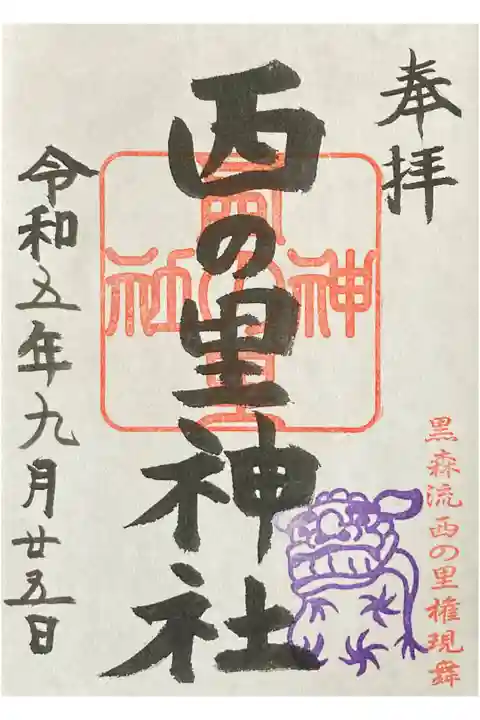 奉拝
西の里神社
西の里神社
黒森流西の里権現舞
令和五年九月廿五日